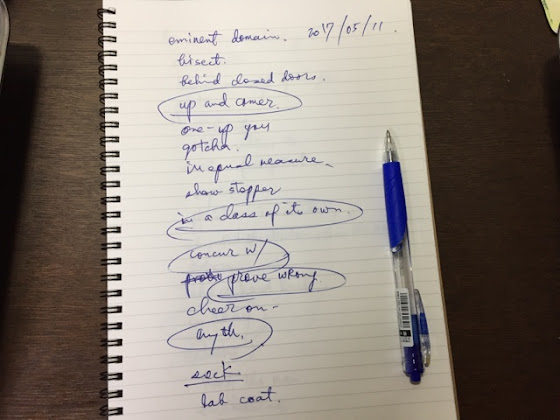 eminent domain. 2017/05/11.
bisect.
behind closed doors.
up and comer.
one-up you
gotcha.
in equal measure.
show stopper
in a class of its own.
concur w/
prove wrong
cheer on-
myth.
sock
lab coat.